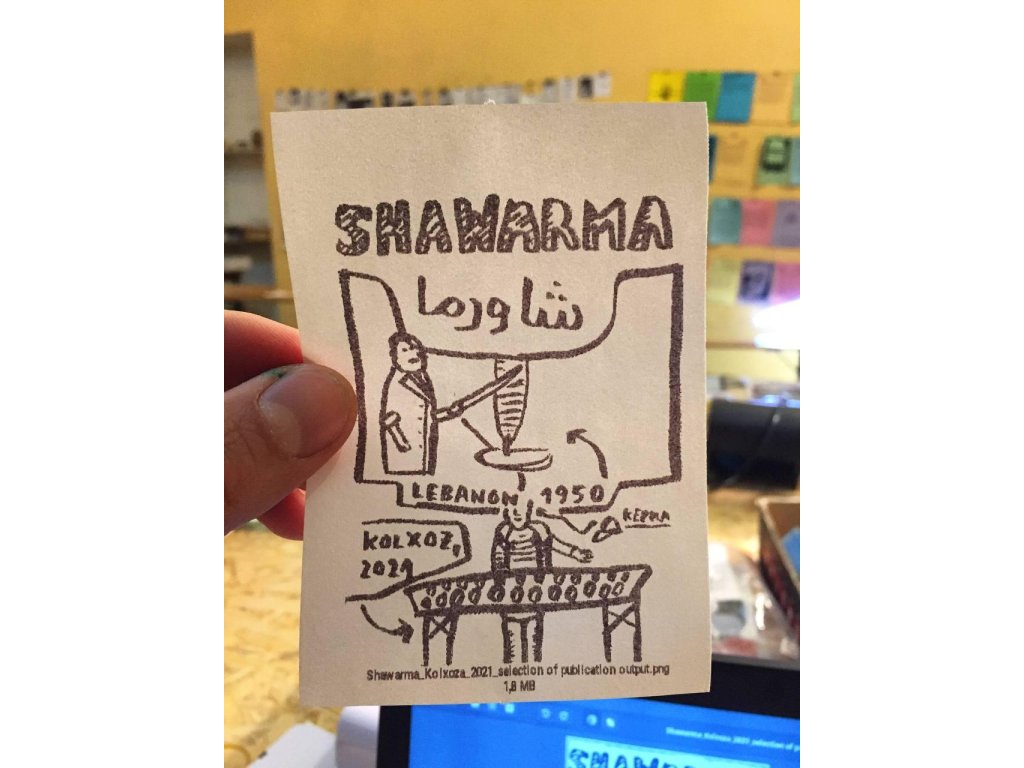 SHAWARMA
شاورما
LEBANON 1950
KEPKA
KOLXOZ,
2021
Shawarma_Kolxoza_2021_selection of publication output.png
1,8 MB
Shawarma_Kolxoza_2021_selection of p
SHAWARMA